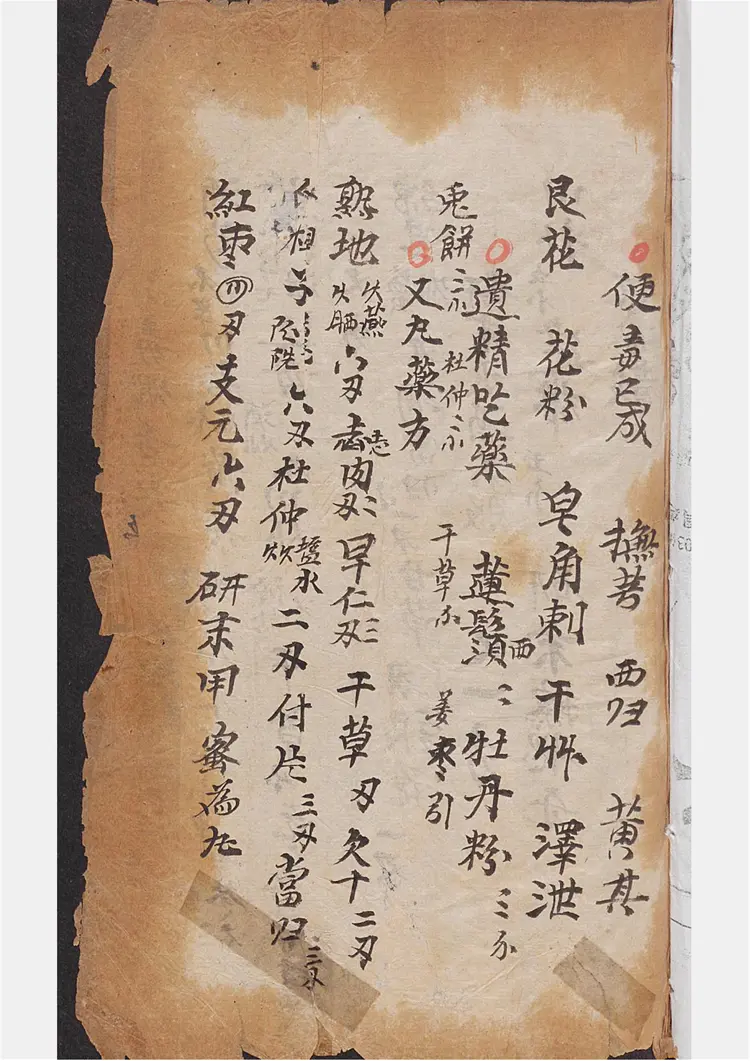 便毒已成 撫芎 西归 黄其
艮花 花粉 皂角刺 干艸 澤泄
遺精吃藥 蓮鬚 西 牡丹粉 三分
兎餅 杜仲 干草 姜枣引
又丸藥方
熟地 六刄 肉刄 早仁刄 干草刄 欠十二刄
子 六刄 杜仲 盐水炊 二刄 付片 三刄 當归 三刄
紅枣 四刄 支元六刄 研末用 蜜為丸